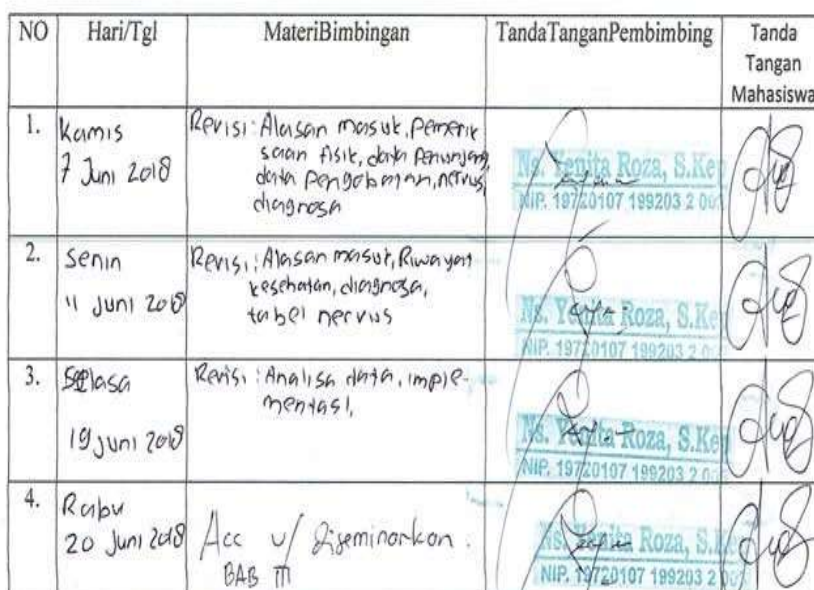 NO Hari/Tgl MateriBimbingan TandaTanganPembimbing Tanda
Tangan
Mahasiswa
1. Kamis
7 Juni 2018
Revisi: Alasan masuk, Pemerik
saan fisik, data penunjang,
data pengobatan, nervus,
diagnosa
Ns. Yenita Roza, S.Kep
NIP. 19720107 199203 2 00
2. Senin
11 Juni 2018
Revisi: Alasan masuk, Riwayat
kesehatan, diagnosa,
tabel nervus
Ns. Yenita Roza, S.Ke
NIP. 19720107 199203 2 00
3. Selasa
19 Juni 2018
Revisi: Analisa data, imple-
mentasi,
Ns. Yenita Roza, S.Kep
NIP. 19720107 199203 2 00
4. Rabu
20 Juni 2018
Acc u/ diseminarkan.
BAB III
Ns. Yenita Roza, S.
NIP. 19720107 199203 2 00